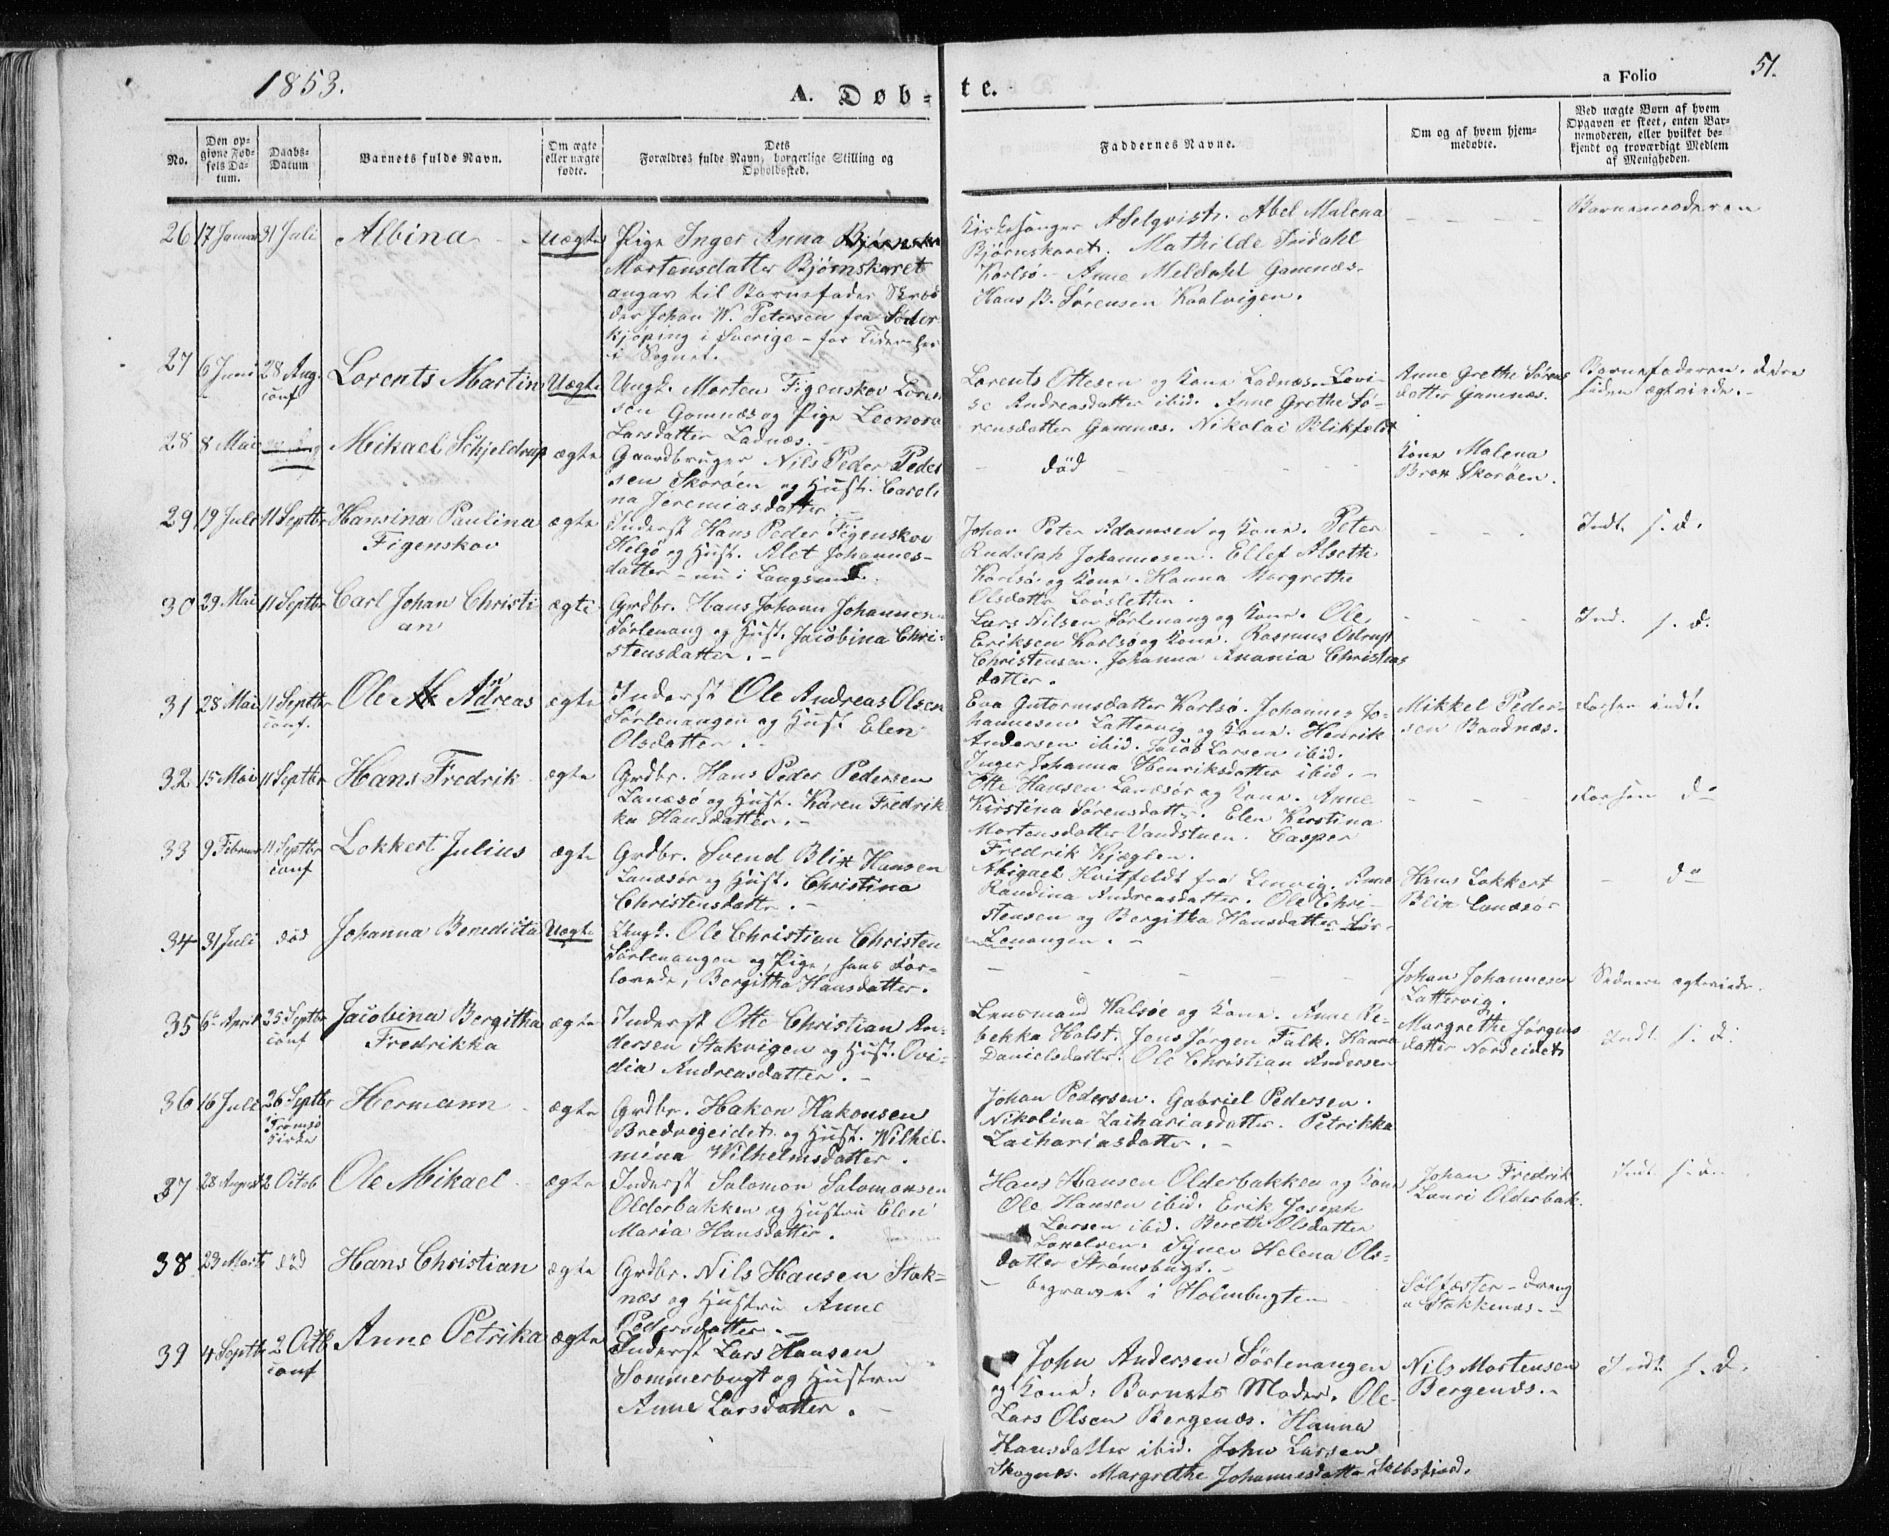 1853.
A. Døb-
te.
a Folio
51.
No.
Den op-
givne Fød-
sels Da-
tum.
Daabs-
Datum
Barnets fulde Navn.
Om ægte
eller uægte
fødte.
Dets
Forældres fulde Navn, borgerlige Stilling og
Opholdssted.
Faddernes Navne.
Om og af hvem hjem-
medøbte.
Ved uægte Børn af hvem
Opgaven er skeet, enten Bar-
nemoderen, eller hvilket be-
kjendt og troværdigt Medlem
af Menigheden.
26 17 Januar 31 Juli Albina Uægte
Pige Inger Anna
Mortensdatter Bjørnskaret
angav til Barnefader Skræd
der Johan W. Petersen fra Söder
kjöping i Sverige - for Tiden her
i Sognet.
Kirkesanger Adelqvist. Abel Malena
Bjørnskaret. Mathilde Dridahl
Karlsö - Anne Meldahl Gamnæs.
Hans B. Sörensen Kaalvigen.
Barnemoderen
27 6 Juni 28 Aug. Lorents Martin Uægte
conf
Ungk. Morten Figenskov Loren
sen Gamnæs og Pige Leonora
Larsdatter Ladnæs.
Lorents Ottesen og Kone Ladnæs. Lovi-
se Andreasdatter ibid. Anne Grethe Sö-
rensdatter Gamnæs. Nikolai Blikfeldt
Anne Grethe Sörens
datter Gamnæs.
Barnefaderen. dere
siden ægteviede.
28 8 Mai Mikael Schjeldrup ægte
Gaardbruger Nils Peder Peder
sen Skoröen og Hust. Caroli
na Jeremiasdatter
död
Kone Malena
Brox Skoröen.
29 19 Juli 11 Septbr Hansina Paulina ægte
Figenskov
Inderst Hans Peder Figenskov
Helgö og Hust. Alet Johannes-
datter - nu i Langsund.
Johan Peter Adamsen og Kone. Peter
Rudolph Johannesen. Ellef Alseth
Karlsö og Kone. Hanna Margrethe
Olsdatter Lövsletten.
Indt. s. d.
30 29 Mai 11 Septbr Carl Johan Christi ægte
an
Grdbr. Hans Johann Johannesen
Sörlenang og Hust. Jacobina Chri-
stensdatter.
Lars Nilsen Sörlenang og Kone. Ole
Eriksen Karlsö og Kone. Rasmus
Christensen. Johanna Anania Christens
datter.
Ind. s. d.
31 28 Mai 11 Septbr Ole Andreas ægte
conf.
Inderst Ole Andreas Olsen
Sörlenangen og Hust Elen
Olsdatter.
Eva Gutormsdatter Karlsö. Johannes Jo-
hannesen Lattervig og Kone. Henrik
Andersen ibid. Jacob Larsen ibid.
Inger Johanna Henriksdatter ibid.
Mikkel Peder-
sen Baadnæs.
Forsen indt.
32 15 Mai 11 Septbr Hans Fredrik ægte
Grdbr. Hans Peder Pedersen
Lanæsö og Hust. Karen Fredrik
ka Hansdatter.
Otte Hansen Lanæsör og Kone. Anne
Kirstina Sörensdatter. Elen Kirstina
Mortensdatter Vandstuen. Casper
Fredrik Kjæglen.
Forsen do
33 9 Februar 11 Septbr Lokkert Julius ægte
conf
Grdbr. Svend Blix Hansen
Lanæsör og Hust. Christina
Christensdatter.
Abigael Hvitfeldt fra Lenvig. Anne
Randina Andreasdatter. Ole Chri-
stensen og Bergitha Hansdatter Sör-
Lenangen.
Hans Lokkert
Blix Lanæsör
do
34 31 Juli död Johanna Benedicta Uægte
Ungk. Ole Christian Christen
Sörlenangen og Pige, hans For-
lovede, Bergitha Hansdatter.
Johan Johannesen
Lattervig.
Sednere ægteviede.
35 6 April 25 Septbr Jacobina Bergitha ægte
conf Fredrikka
Inderst Otte Christian An-
dersen Stakvigen og Hust. Ovi-
dia Andreasdatter.
Lensmand Halsöe og Kone. Anne Re-
bekka Holst. Jens Jörgen Falk. Hanna
Danielsdatter. Ole Christian Andersen
Margrethe Jörgens
datter Nordeidet
Indt. s. d.
36 16 Juli 26 Septbr Hermann ægte
Tromsö
Kirke
Grdbr. Hakon Hakonsen
Bredvigeidet og Hust. Wilhel-
mina Wilhelmsdatter.
Johan Pedersen. Gabriel Pedersen.
Nikolina Zachariasdatter. Petrikka
Zachariasdatter.
37 28 August 2 Octob Ole Mikael ægte
Inderst Salomon Salomonsen
Olderbakken og Hustru Elen
Maria Hansdatter.
Hans Hansen Olderbakken og Kone
Ole Hansen ibid. Erik Joseph
Larsen ibid. Bereth Olsdatter
Synev Helena Ols-
datter Strömsbugt.
Johan Fredrik
Lauri Olderbak.
Indt
38 23 Marts död Hans Christian ægte
Grdbr. Nils Hansen Stok-
næs og Hustru Anne
Pedersdatter.
begravet i Holmbugten
Stokkenæs.
39 4 Septbr 2 Octb Anne Petrika ægte
conf
Inderst Lars Hansen
Sommerbugt og Hustru
Anne Larsdatter.
John Andersen Sörlenangen
og Kone: Barnets Moder. Ole
Lars Olsen Bergenæs. Hanna
Hansdatter ibid. John Larsen
Skognæs. Margrethe Johannesdatter
Nils Mortensen
Bergenæs.
Indt. s. d.